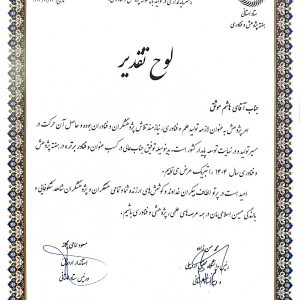 ستاد استانی
هفته پژوهش و فناوری
لوح تقدیر
جناب آقای هاشم موثق
امر پژوهش به عنوان لازمه تولید علم و فناوری، نیازمند تلاش پژوهشگران و فناوران بوده و حاصل آن حرکت در
مسیر تولید و در نهایت توسعه پایدار کشور است. بدینوسیله توفیق جنابعالی در کسب عنوان فناور برتر در هفته پژوهش
و فناوری سال ۱۴۰۲ را تبریک عرض می‌نماییم.
امید است در پرتو الطاف بیکران خداوند و کوشش‌های ارزنده شما و تمامی همفکران و پژوهشگران شاهد شکوفایی و
بالندگی میهن اسلامی‌مان در همه عرصه‌های علمی، پژوهشی و فناوری باشیم.
استاندار اردبیل
و رئیس ستاد استانی